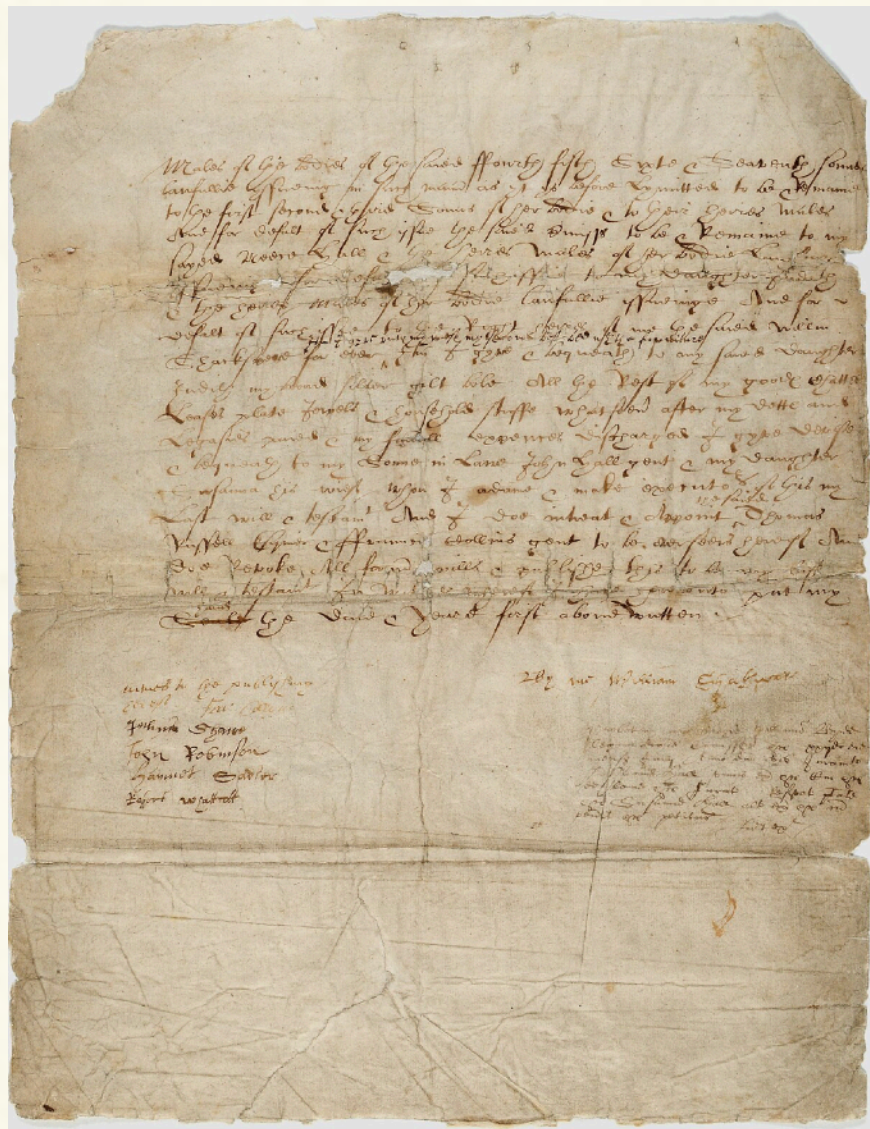 Males of the bodies of the saied ffourth fifth Sixte & Seaventh sonnes
lawfullie yssueing in such mann as yt ys before Lymitted to be & Remaine
to the first second & third Sonns of her bodie & to their heires Males
And for defalt of such issue the said premisss to be & Remaine to my
sayed Neece Hall & the heires Males of her bodie Lawfullie
yssueing & for defalt of such issue to my daughter Judith
& the heires Males of her bodie lawfullie issueinge And for
defalt of such issue to the Right heires of me the saied Willm
Itm I gyve unto my wief my second best bed with the furniture
Shackspere for ever Itm I gyve & bequeath to my saied daughter
Judith my broad silver gilt bole All the Rest of my goodes Chattels
Leases plate Jewels & houshold stuffe whatsoev after my dettes and
Legasies paied & my funerall expences discharged I gyve devise
& bequeath to my Sonne in Lawe John Hall gent & my daughter
Susanna his wief whom I ordaine & make executors of this my
the saied
Last will & testamt And I doe intreat & Appoint Thomas
Russell Esquier & ffrauncis Collins gent to be overseers hereof And
doe Revoke All former wills & publishe this to be my last
will & testamt In witnes whereof I have hereunto put my
hand
Seale the daie & Yeare first above written
By me William Shakspeare
witnes to the publishing
hereof Fra: Collyns
Julius Shawe
John Robinson
Hamnet Sadler
Robert Whattcott